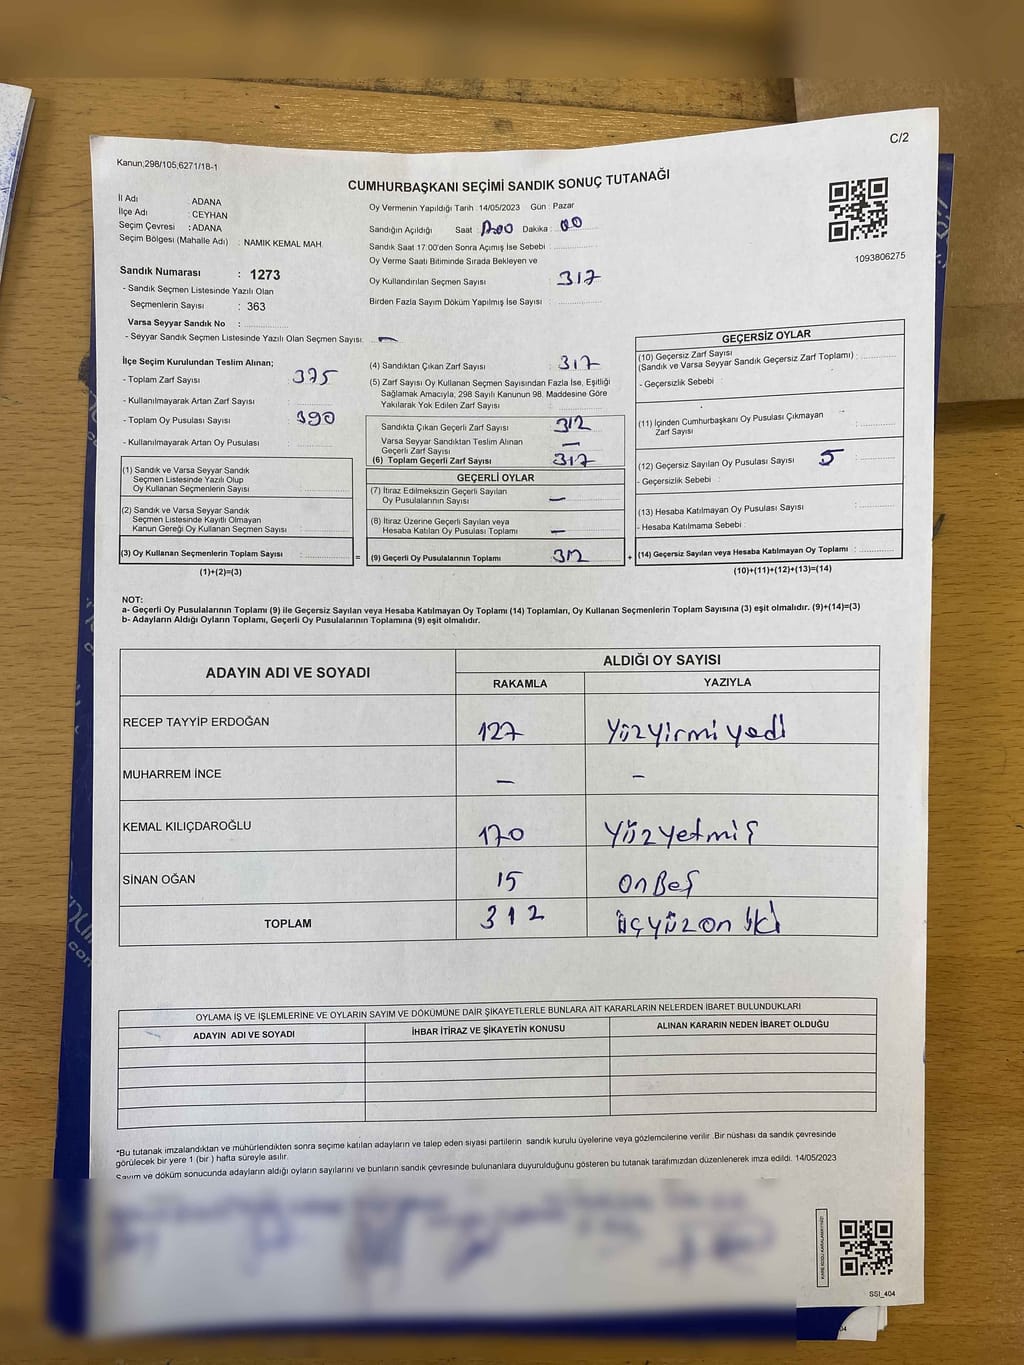 C/2
Kanun;298/105,6271/18-1
CUMHURBAŞKANI SEÇİMİ SANDIK SONUÇ TUTANAĞI
İl Adı : ADANA
İlçe Adı : CEYHAN
Seçim Çevresi : ADANA
Seçim Bölgesi (Mahalle Adı) : NAMIK KEMAL MAH.
Sandık Numarası : 1273
- Sandık Seçmen Listesinde Yazılı Olan
Seçmenlerin Sayısı : 363
Varsa Seyyar Sandık No :
- Seyyar Sandık Seçmen Listesinde Yazılı Olan Seçmen Sayısı: —
Oy Vermenin Yapıldığı Tarih : 14/05/2023 Gün : Pazar
Sandığın Açıldığı Saat : 17.00 Dakika : 00
Sandık Saat 17:00'den Sonra Açımış İse Sebebi :
Oy Verme Saati Bitiminde Sırada Bekleyen ve
Oy Kullandırılan Seçmen Sayısı : 317
Birden Fazla Sayım Döküm Yapılmış İse Sayısı :
1093806275
İlçe Seçim Kurulundan Teslim Alınan;
- Toplam Zarf Sayısı : 375
- Kullanılmayarak Artan Zarf Sayısı :
- Toplam Oy Pusulası Sayısı : 390
- Kullanılmayarak Artan Oy Pusulası :
(1) Sandık ve Varsa Seyyar Sandık
Seçmen Listesinde Yazılı Olup
Oy Kullanan Seçmenlerin Sayısı :
(2) Sandık ve Varsa Seyyar Sandık
Seçmen Listesinde Kayıtlı Olmayan
Kanun Gereği Oy Kullanan Seçmen Sayısı :
(3) Oy Kullanan Seçmenlerin Toplam Sayısı : =
(1)+(2)=(3)
(4) Sandıktan Çıkan Zarf Sayısı : 317
(5) Zarf Sayısı Oy Kullanan Seçmen Sayısından Fazla İse, Eşitliği
Sağlamak Amacıyla, 298 Sayılı Kanunun 98. Maddesine Göre
Yakılarak Yok Edilen Zarf Sayısı :
Sandıkta Çıkan Geçerli Zarf Sayısı : 312
Varsa Seyyar Sandıktan Teslim Alınan
Geçerli Zarf Sayısı : —
(6) Toplam Geçerli Zarf Sayısı : 317
GEÇERLİ OYLAR
(7) İtiraz Edilmeksizin Geçerli Sayılan
Oy Pusulalarının Sayısı : —
(8) İtiraz Üzerine Geçerli Sayılan veya
Hesaba Katılan Oy Pusulası Toplamı : —
(9) Geçerli Oy Pusulalarının Toplamı : 312 +
GEÇERSİZ OYLAR
(10) Geçersiz Zarf Sayısı
(Sandık ve Varsa Seyyar Sandık Geçersiz Zarf Toplamı) :
- Geçersizlik Sebebi :
(11) İçinden Cumhurbaşkanı Oy Pusulası Çıkmayan
Zarf Sayısı :
(12) Geçersiz Sayılan Oy Pusulası Sayısı : 5
- Geçersizlik Sebebi :
(13) Hesaba Katılmayan Oy Pusulası Sayısı :
- Hesaba Katılmama Sebebi :
(14) Geçersiz Sayılan veya Hesaba Katılmayan Oy Toplamı :
(10)+(11)+(12)+(13)=(14)
NOT:
a- Geçerli Oy Pusulalarının Toplamı (9) ile Geçersiz Sayılan veya Hesaba Katılmayan Oy Toplamı (14) Toplamları, Oy Kullanan Seçmenlerin Toplam Sayısına (3) eşit olmalıdır. (9)+(14)=(3)
b- Adayların Aldığı Oyların Toplamı, Geçerli Oy Pusulalarının Toplamına (9) eşit olmalıdır.
ADAYIN ADI VE SOYADI ALDIĞI OY SAYISI
RAKAMLA YAZIYLA
RECEP TAYYİP ERDOĞAN 127 Yüzyirmiyedi
MUHARREM İNCE — -
KEMAL KILIÇDAROĞLU 170 Yüzyetmiş
SİNAN OĞAN 15 OnBeş
TOPLAM 312 üçyüzon iki
OYLAMA İŞ VE İŞLEMLERİNE VE OYLARIN SAYIM VE DÖKÜMÜNE DAİR ŞİKAYETLERLE BUNLARA AİT KARARLARIN NELERDEN İBARET BULUNDUKLARI
ADAYIN ADI VE SOYADI İHBAR İTİRAZ VE ŞİKAYETİN KONUSU ALINAN KARARIN NEDEN İBARET OLDUĞU
*Bu tutanak imzalandıktan ve mühürlendikten sonra seçime katılan adayların ve talep eden siyasi partilerin sandık kurulu üyelerine veya gözlemcilerine verilir. Bir nüshası da sandık çevresinde
görülecek bir yere 1 (bir) hafta süreyle asılır.
Sayım ve döküm sonucunda adayların aldığı oyların sayılarını ve bunların sandık çevresinde bulunanlara duyurulduğunu gösteren bu tutanak tarafımızdan düzenlenerek imza edildi. 14/05/2023
KARE KODU KARALAMAYINIZ!
SSI_404